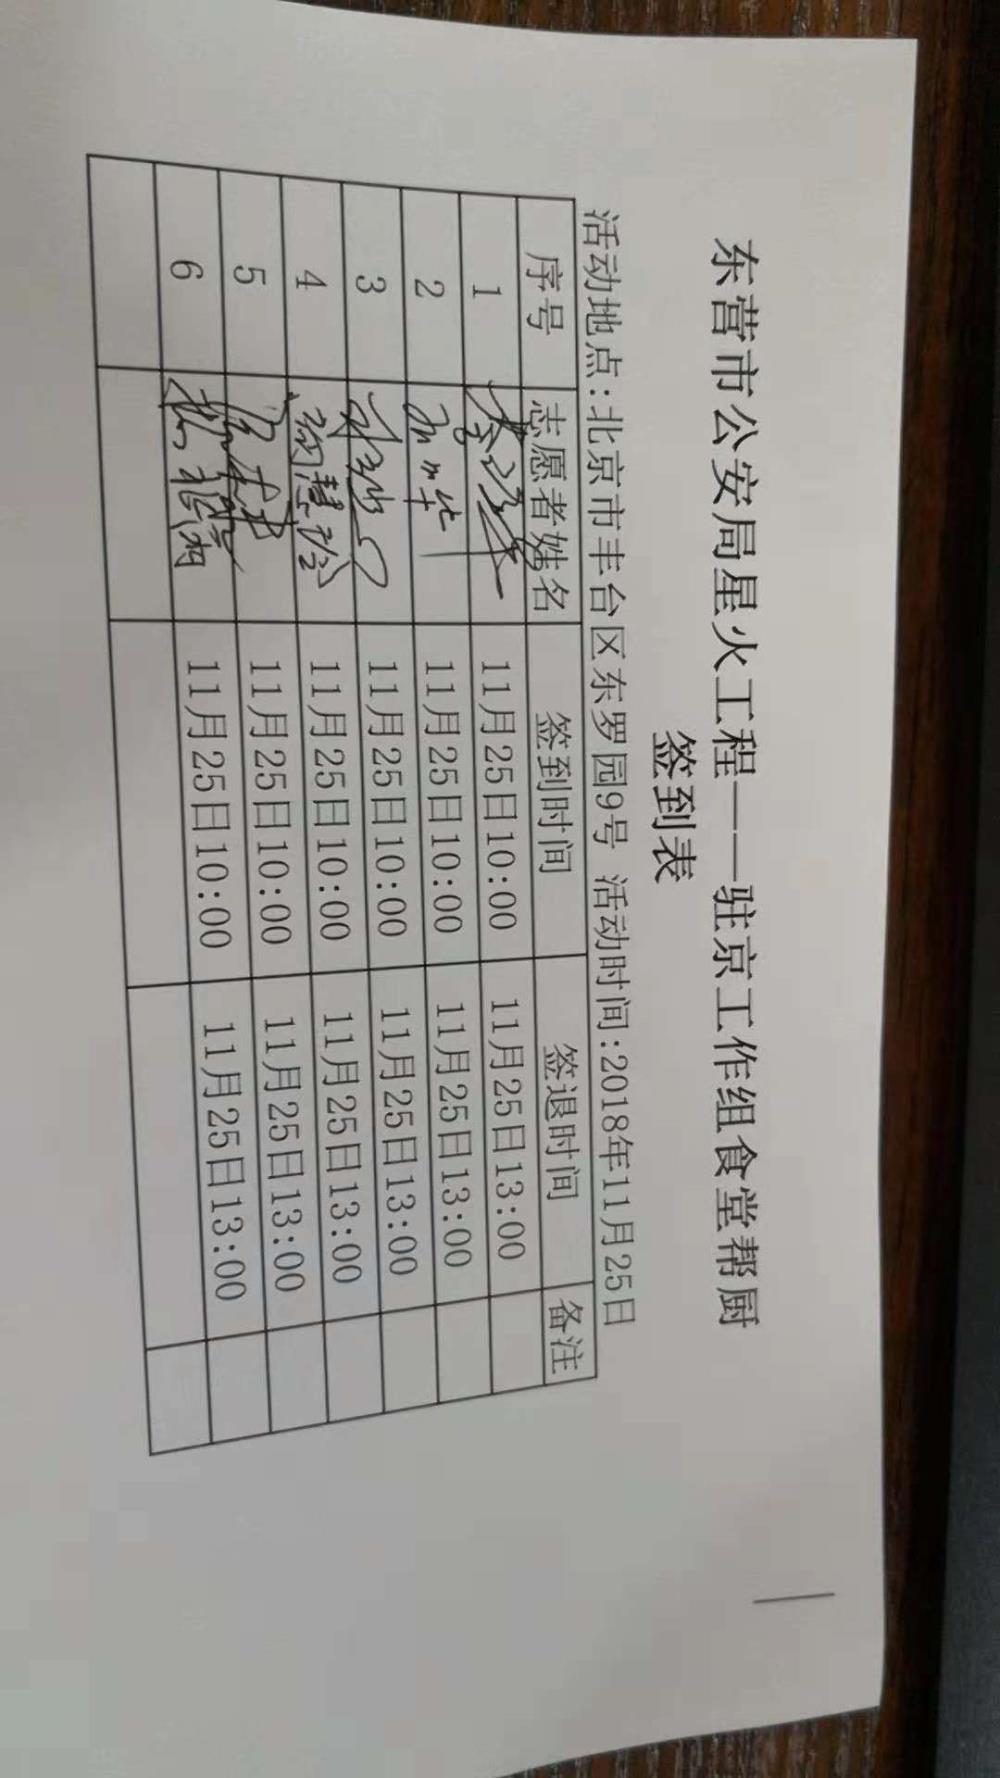 东营市公安局星火工程——驻京工作组食堂帮厨
签到表
活动地点:北京市丰台区东罗园9号 活动时间:2018年11月25日
序号 志愿者姓名 签到时间 签退时间 备注
1 11月25日10:00 11月25日13:00
2 11月25日10:00 11月25日13:00
3 11月25日10:00 11月25日13:00
4 11月25日10:00 11月25日13:00
5 11月25日10:00 11月25日13:00
6 11月25日10:00 11月25日13:00